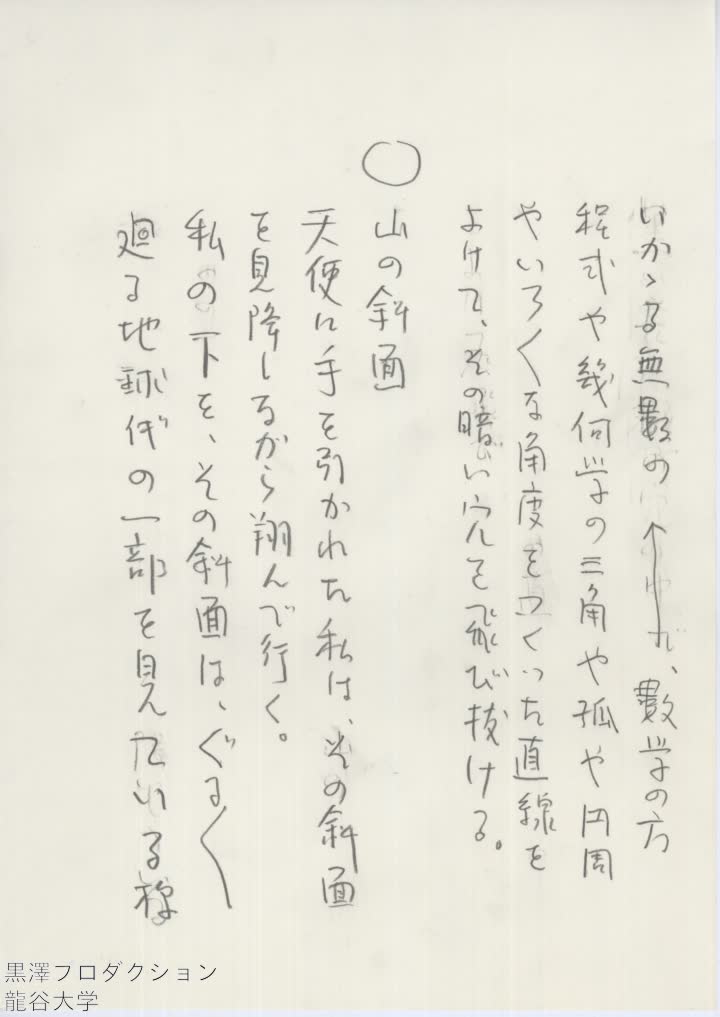 いかゝる無数の↑で、數学の方
程式や幾何学の三角や孤や円周
やいろ〱な角度をつくった直線を
よけて、その暗い穴を飛び抜ける。
○
山の斜面
天使に手を引かれた私は、その斜面
を見降しるがら翔んで行く。
私の下を、その斜面は、ぐる〱
廻る地球儀の一部を見ている様
黒澤フロダクション
龍谷大学